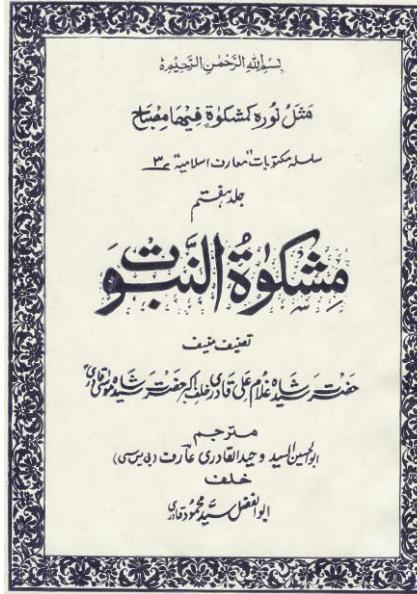 بسم الله الرحمن الرحیم
مثل نوره کمشکوٰة فیها مصباح
سلسلہ مکتوبات "معارف اسلامیہ" ۳
جلد ہفتم
مشکوٰة النبوت
تصنیف منیف
حضرت سید شاہ غلام علی قادری خلف اکبر حضرت سید شاہ موسیٰ قادری
مترجم
ابوالحسین السید وحید القادری عارف (بی یس سی)
خلف
ابوالفضل سید محمود قادری